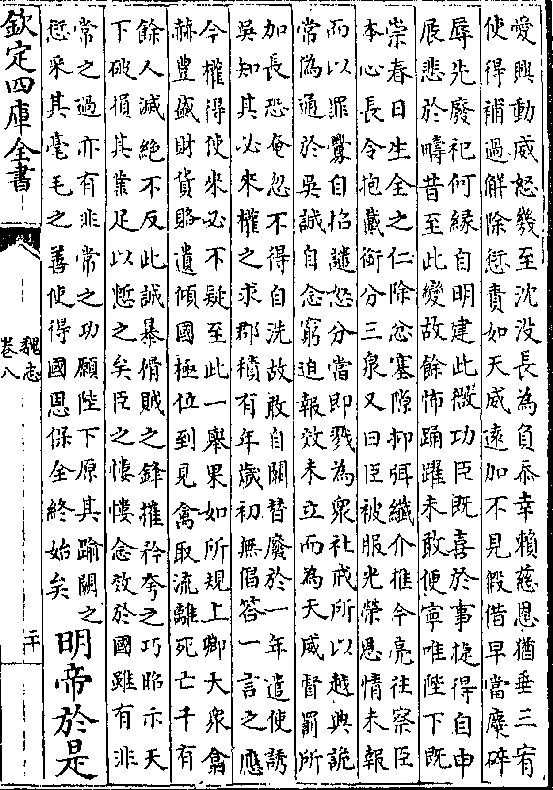 愛興動威怒幾至沈没長為負忝幸賴慈恩猶垂三宥
使得補過解除愆責如天威遠加不見假借早當麋碎
辱先廢祀何緣自明建此微功臣既喜於事捷得自申
展悲於疇昔至此變故餘怖踊躍未敢便寧唯陛下既
崇春日生全之仁除忿塞隙抑弭纖介推今亮往察臣
本心長令抱戴銜分三泉又曰臣被服光榮恩情未報
而以罪釁自招譴怒分當即戮為衆社戒所以越典詭
常偽通於吳誠自念窮迫報效未立而為天威督罰所
加長恐奄忽不得自洗故敢自闗替廢於一年遣使誘
吳知其必來權之求郡積有年歲初無倡答一言之應
今權得使來必不疑至此一舉果如所規上卿大衆翕
赫豐盛財貨賂遺傾國極位到見禽取流離死亡千有
餘人滅絶不反此誠暴猾賊之鋒摧矜夸之巧昭示天
下破損其業足以慙之矣臣之慺慺念效於國雖有非
常之過亦有非常之功願陛下原其踰闕之
愆采其毫毛之善使得國恩保全終始矣
明帝於是
欽定四庫全書
魏志
卷八
二十